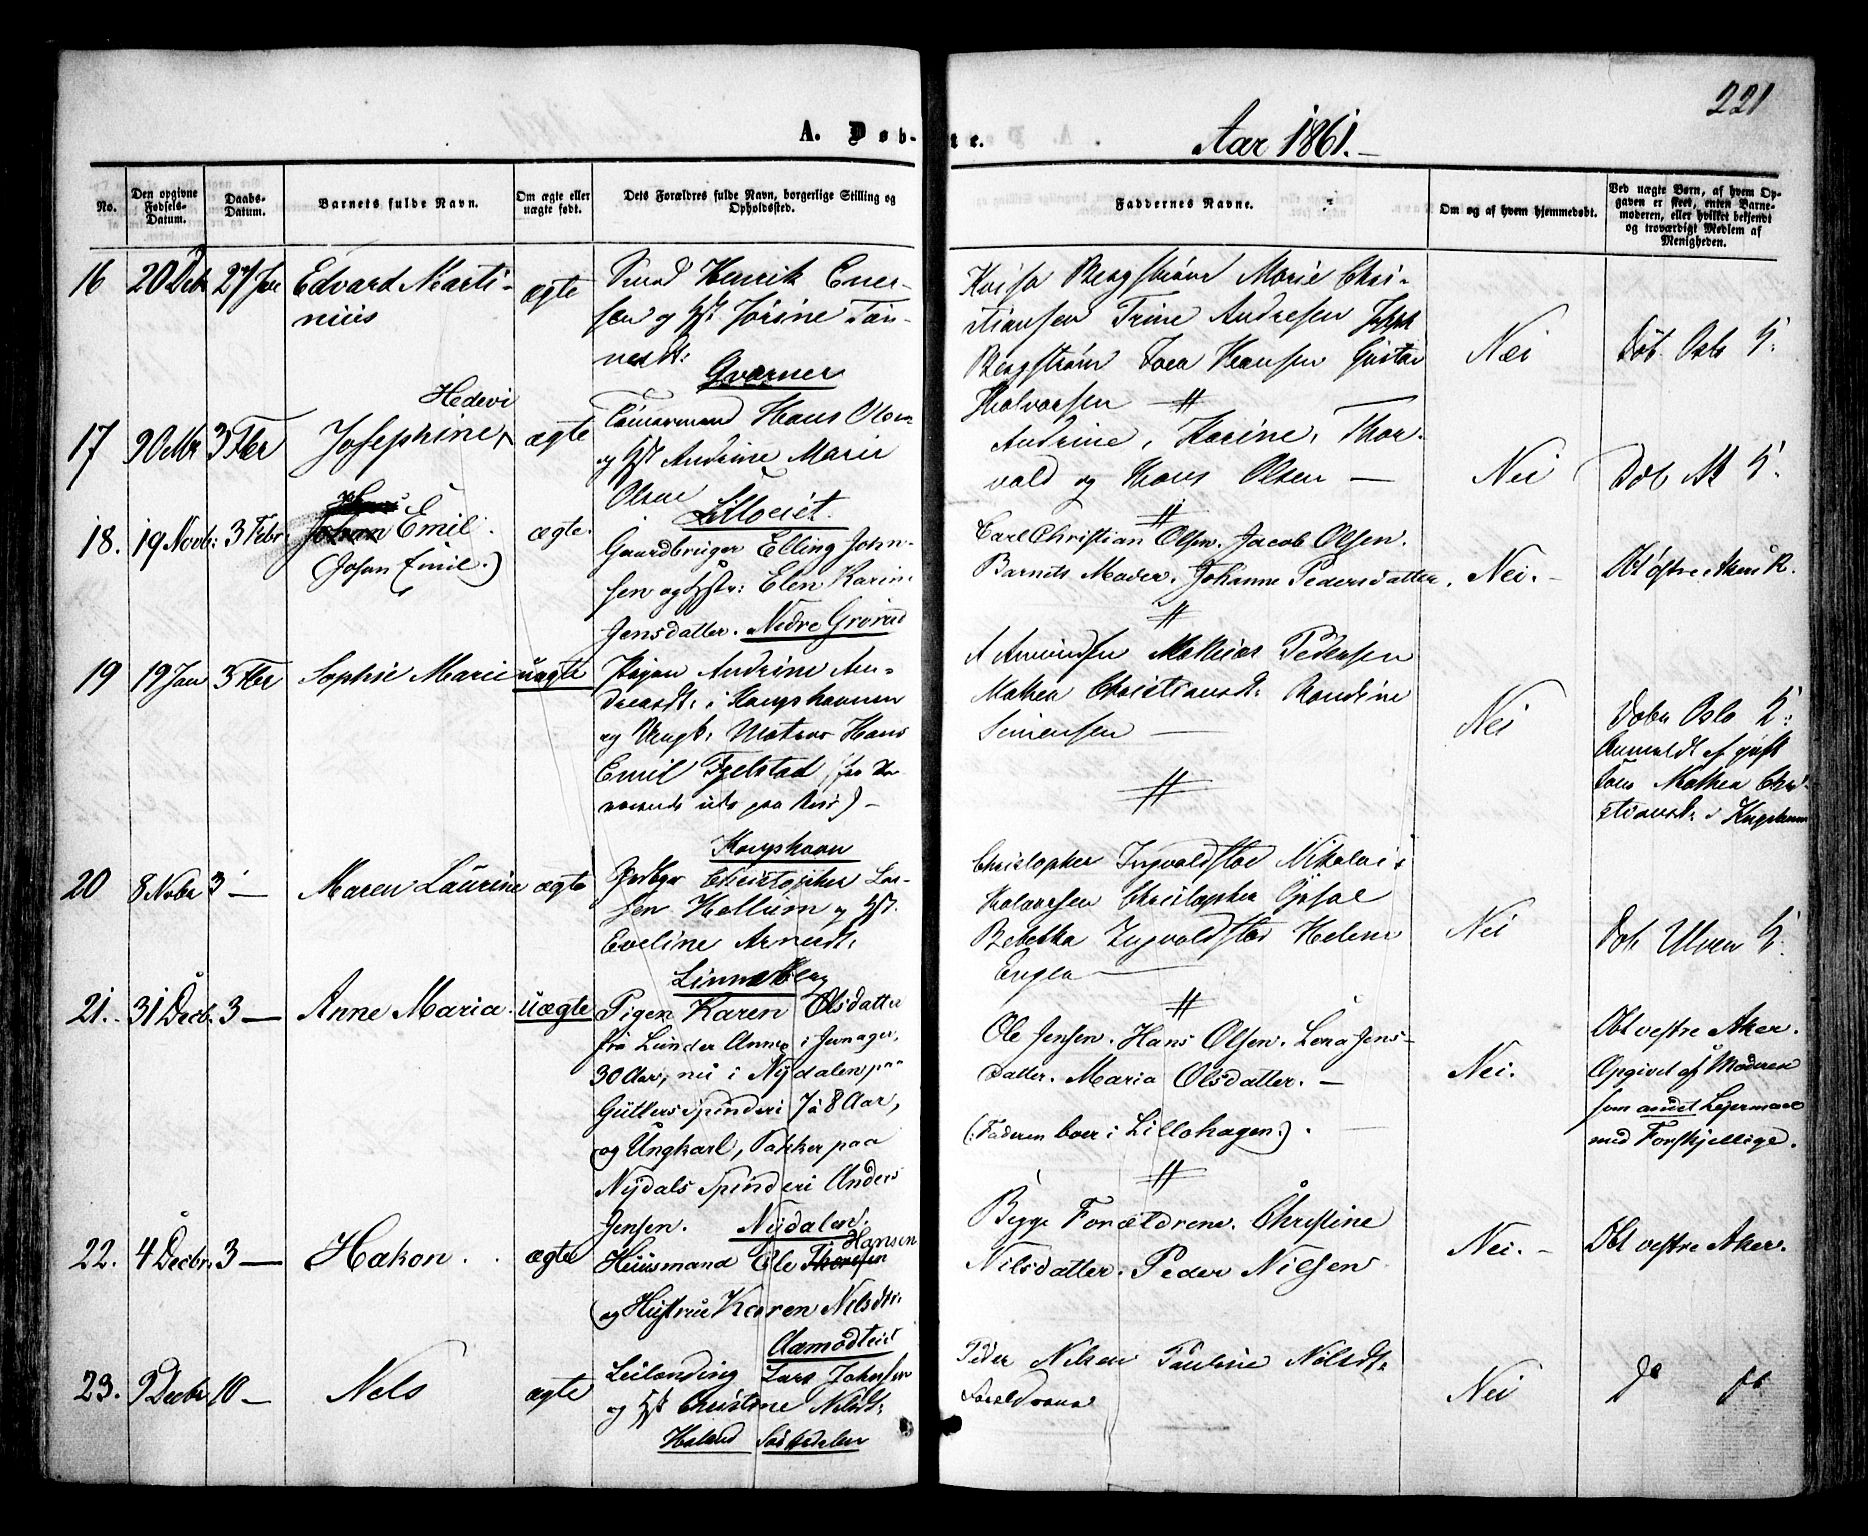 221
A. Døb-
te.
Aar 1861.
No.
Den opgivne Fødsels-Datum.
Daabs-Datum.
Barnets fulde Navn.
Om ægte eller uægte født.
Dets Forældres fulde Navn, borgerlige Stilling og Opholdssted.
Faddernes Navne.
Om og af hvem hjemmedøbt.
Ved uægte Børn, af hvem Opgaven er skeet, enten Barnemoderen, eller hvilket bekjendt og troværdigt Medlem af Menigheden.
16 20 Dcb 27 Jan Edvard Marti-
nius
ægte
Smed Henrik Ener-
sen og Hst Jørine Tøn-
nesdt:
Gvarner
Bergstrøm Marie Chri-
stiansen Trine Andresen
Bergstrøm Hansen Gustav
Halvorsen
Nei
Døb. Oslo K:
17 3 Fbr Josephine Hedevi
ægte
Tømermand Hans Olsen
og Hst Andrine Marie
Olsen
Lilloeiet.
Andrine, Karine, Thor-
vald og Hans Olsen —
Nei
Døb K:
18. 19 Novb: 3 Febr. Johan Emil.
(Johan Emil.)
ægte.
Gaardbruger Elling John-
sen og Hstr: Elen Karin
Jensdatter. Nedre Grorud
Carl Christian Olsen. Jacob Olsen.
Barnets Moder. Johanne Pedersdatter.
Nei. -
Dbt østre Akers K.
19 19 Jan 3 Fbr Sophie Marie
uægte
Pigen Andrine An-
dreasdt: i Kongshavnen
og Ungk: Matros Hans
Emil Fjelstad (for Nær-
værende ude paa Reise) -
Kongshavn
A Amundsen Mathias Pedersen
Mathea Christiansdt: Randine
Simensen —
Nei
Døbt Oslo K:
Anmeldt af
Mathea Chri-
stiansdt: i Kngshavn
20 8 Nvbr 3 — Maren Laurine
ægte
Christopher Lar-
sen Hellum og Hst.
Eveline Arnesdt:
Linneberg
Christopher Ingvaldstad Nikolai
Halvorsen Christopher
Rebekka Ingvaldstad Helene
Engla —
Nei
Døb Ulven K:
21. 31 Decb. 3 — Anne Maria.
uægte
Pigen Karen Olsdatter
fra Lunder Annex i Jevnager,
30 Aar, nu i Nydalen paa
Gullers Spinderi 7 à 8 Aar,
og Ungkarl, Pakker paa
Nydals Spinderi Anders
Jensen. Nydalen.
Ole Jensen. Hans Olsen. Lena Jens-
datter. Maria Olsdatter. —
(: Faderen boer i Lillohagen:).
Nei.
Dbt vestre Aker.
Opgivet af Moderen
som andet Leiermaal
med Forskjellige.
22. 4 Decbr. 3 — Hakon.
ægte
Hansen
Huusmand Ole Thoresen
og Hustrue Karen Nilsdtr:
Aamodteiet
Begge Forældrene. Christine
Nilsdatter. Peder Nielsen
Nei. -
Dbt vestre Aker.
23. 9 Decbr 10 — Nels
ægte
Leilending Lars Johnsen
og Hst Christine Nilsdt:
Peder Nilsen Pauline Nilsdt:
Forældrene
Nei
Do Do